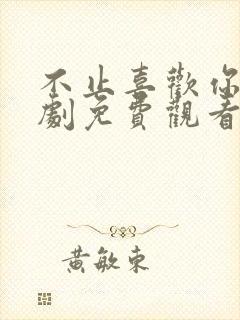 不止喜歡你
劇免費觀看
黃敏東